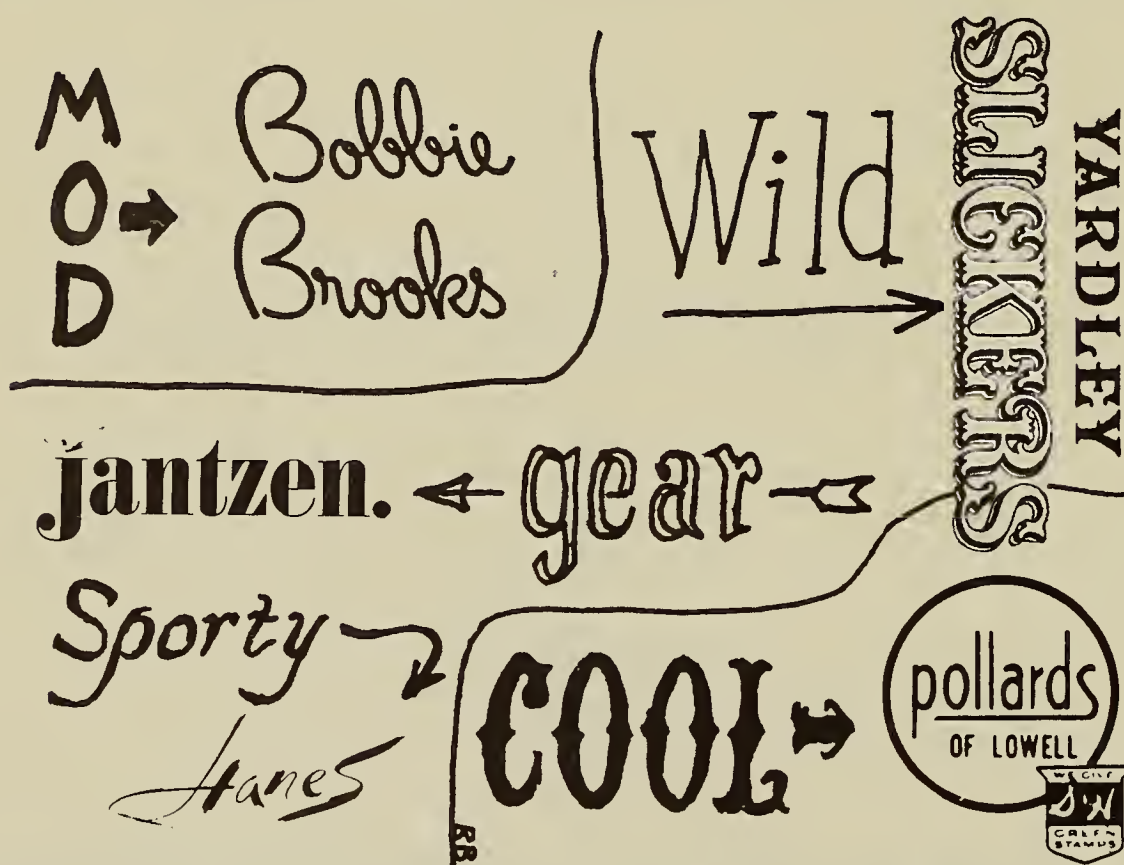 MOD
Bobbie
Brooks
Wild
SLICKERS
YARDLEY
jantzen.
gear
Sporty
Hanes
COOL
pollards
OF LOWELL
WE GIVE
S&H
GREEN
STAMPS
RB